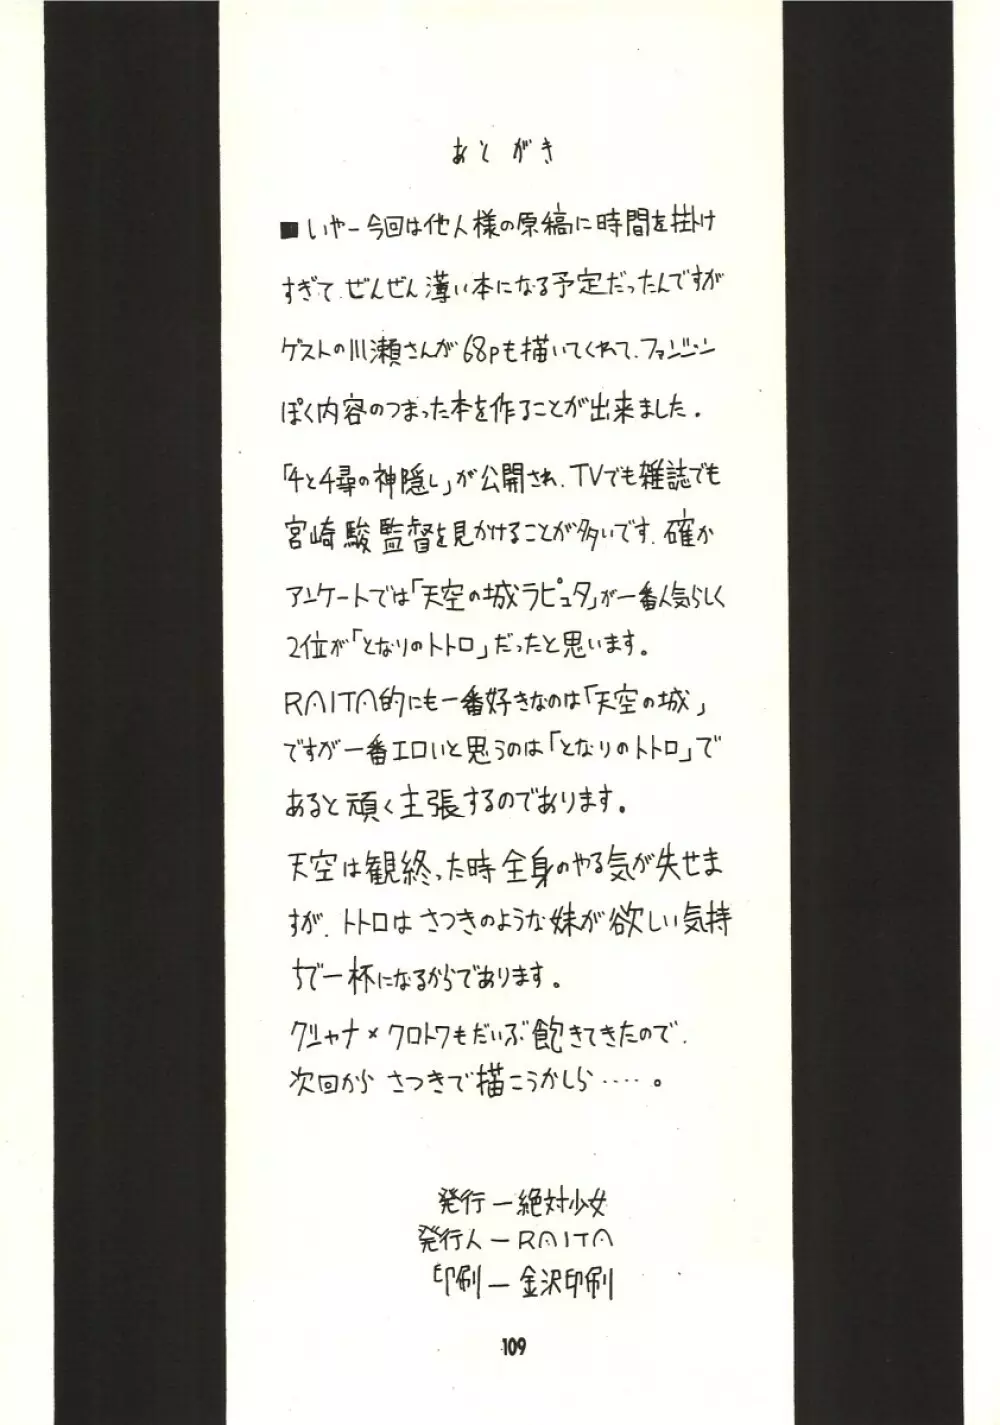 あとがき
■いやー今回は他人様の原稿に時間を掛け
すぎて、ぜんぜん薄い本になる予定だったんですが
ゲストの川瀬さんが68pも描いてくれて、ファンジン
ぽく内容のつまった本を作ることが出来ました。
「千と千尋の神隠し」が公開され、TVでも雑誌でも
宮崎駿監督を見かけることが多いです。確か
アンケートでは「天空の城ラピュタ」が一番人気らしく
2位が「となりのトトロ」だったと思います。
RAITA的にも一番好きなのは「天空の城」
ですが一番エロいと思うのは「となりのトトロ」で
あると頑く主張するのであります。
天空は観終った時全身のやる気が失せま
すが、トトロはさつきのような妹が欲しい気持
ちで一杯になるからであります。
クシャナ×クロトワもだいぶ飽きてきたので、
次回からさつきで描こうかしら‥‥‥。
発行ー絶対少女
発行人ーRAITA
印刷ー金沢印刷
109